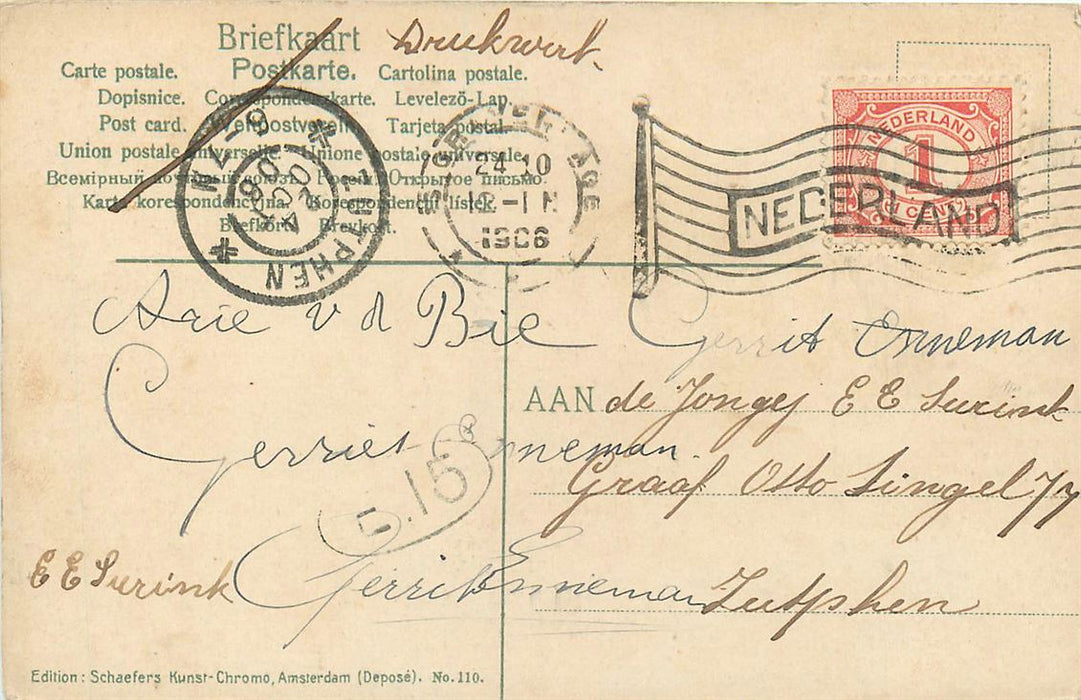 Briefkaart Drukwerk
Carte postale. Postkarte. Cartolina postale.
Dopisnice. Correspondenzkarte. Levelező-Lap.
Post card. Tarjeta postal.
Union postale universelle. Unione postale universale.
Всемірный почтовый союзъ. Россія. Открытое письмо.
Karta korespondencyjna. Korespondenční lístek.
Brefkort. Brevkort.
ZUTPHEN
24 10
12 - 1 N
1906
NEDERLAND
NEDERLAND
1
1 CENT
Arie v d Bie
Gerrit Enneman
AAN de Jongej E E Surink
Gerriet Enneman.
Graaf Otto Singel 77
.15
E E Surink
Gerrit Enneman
Zutphen
Edition: Schaefers Kunst-Chromo, Amsterdam (Deposé). No. 110.